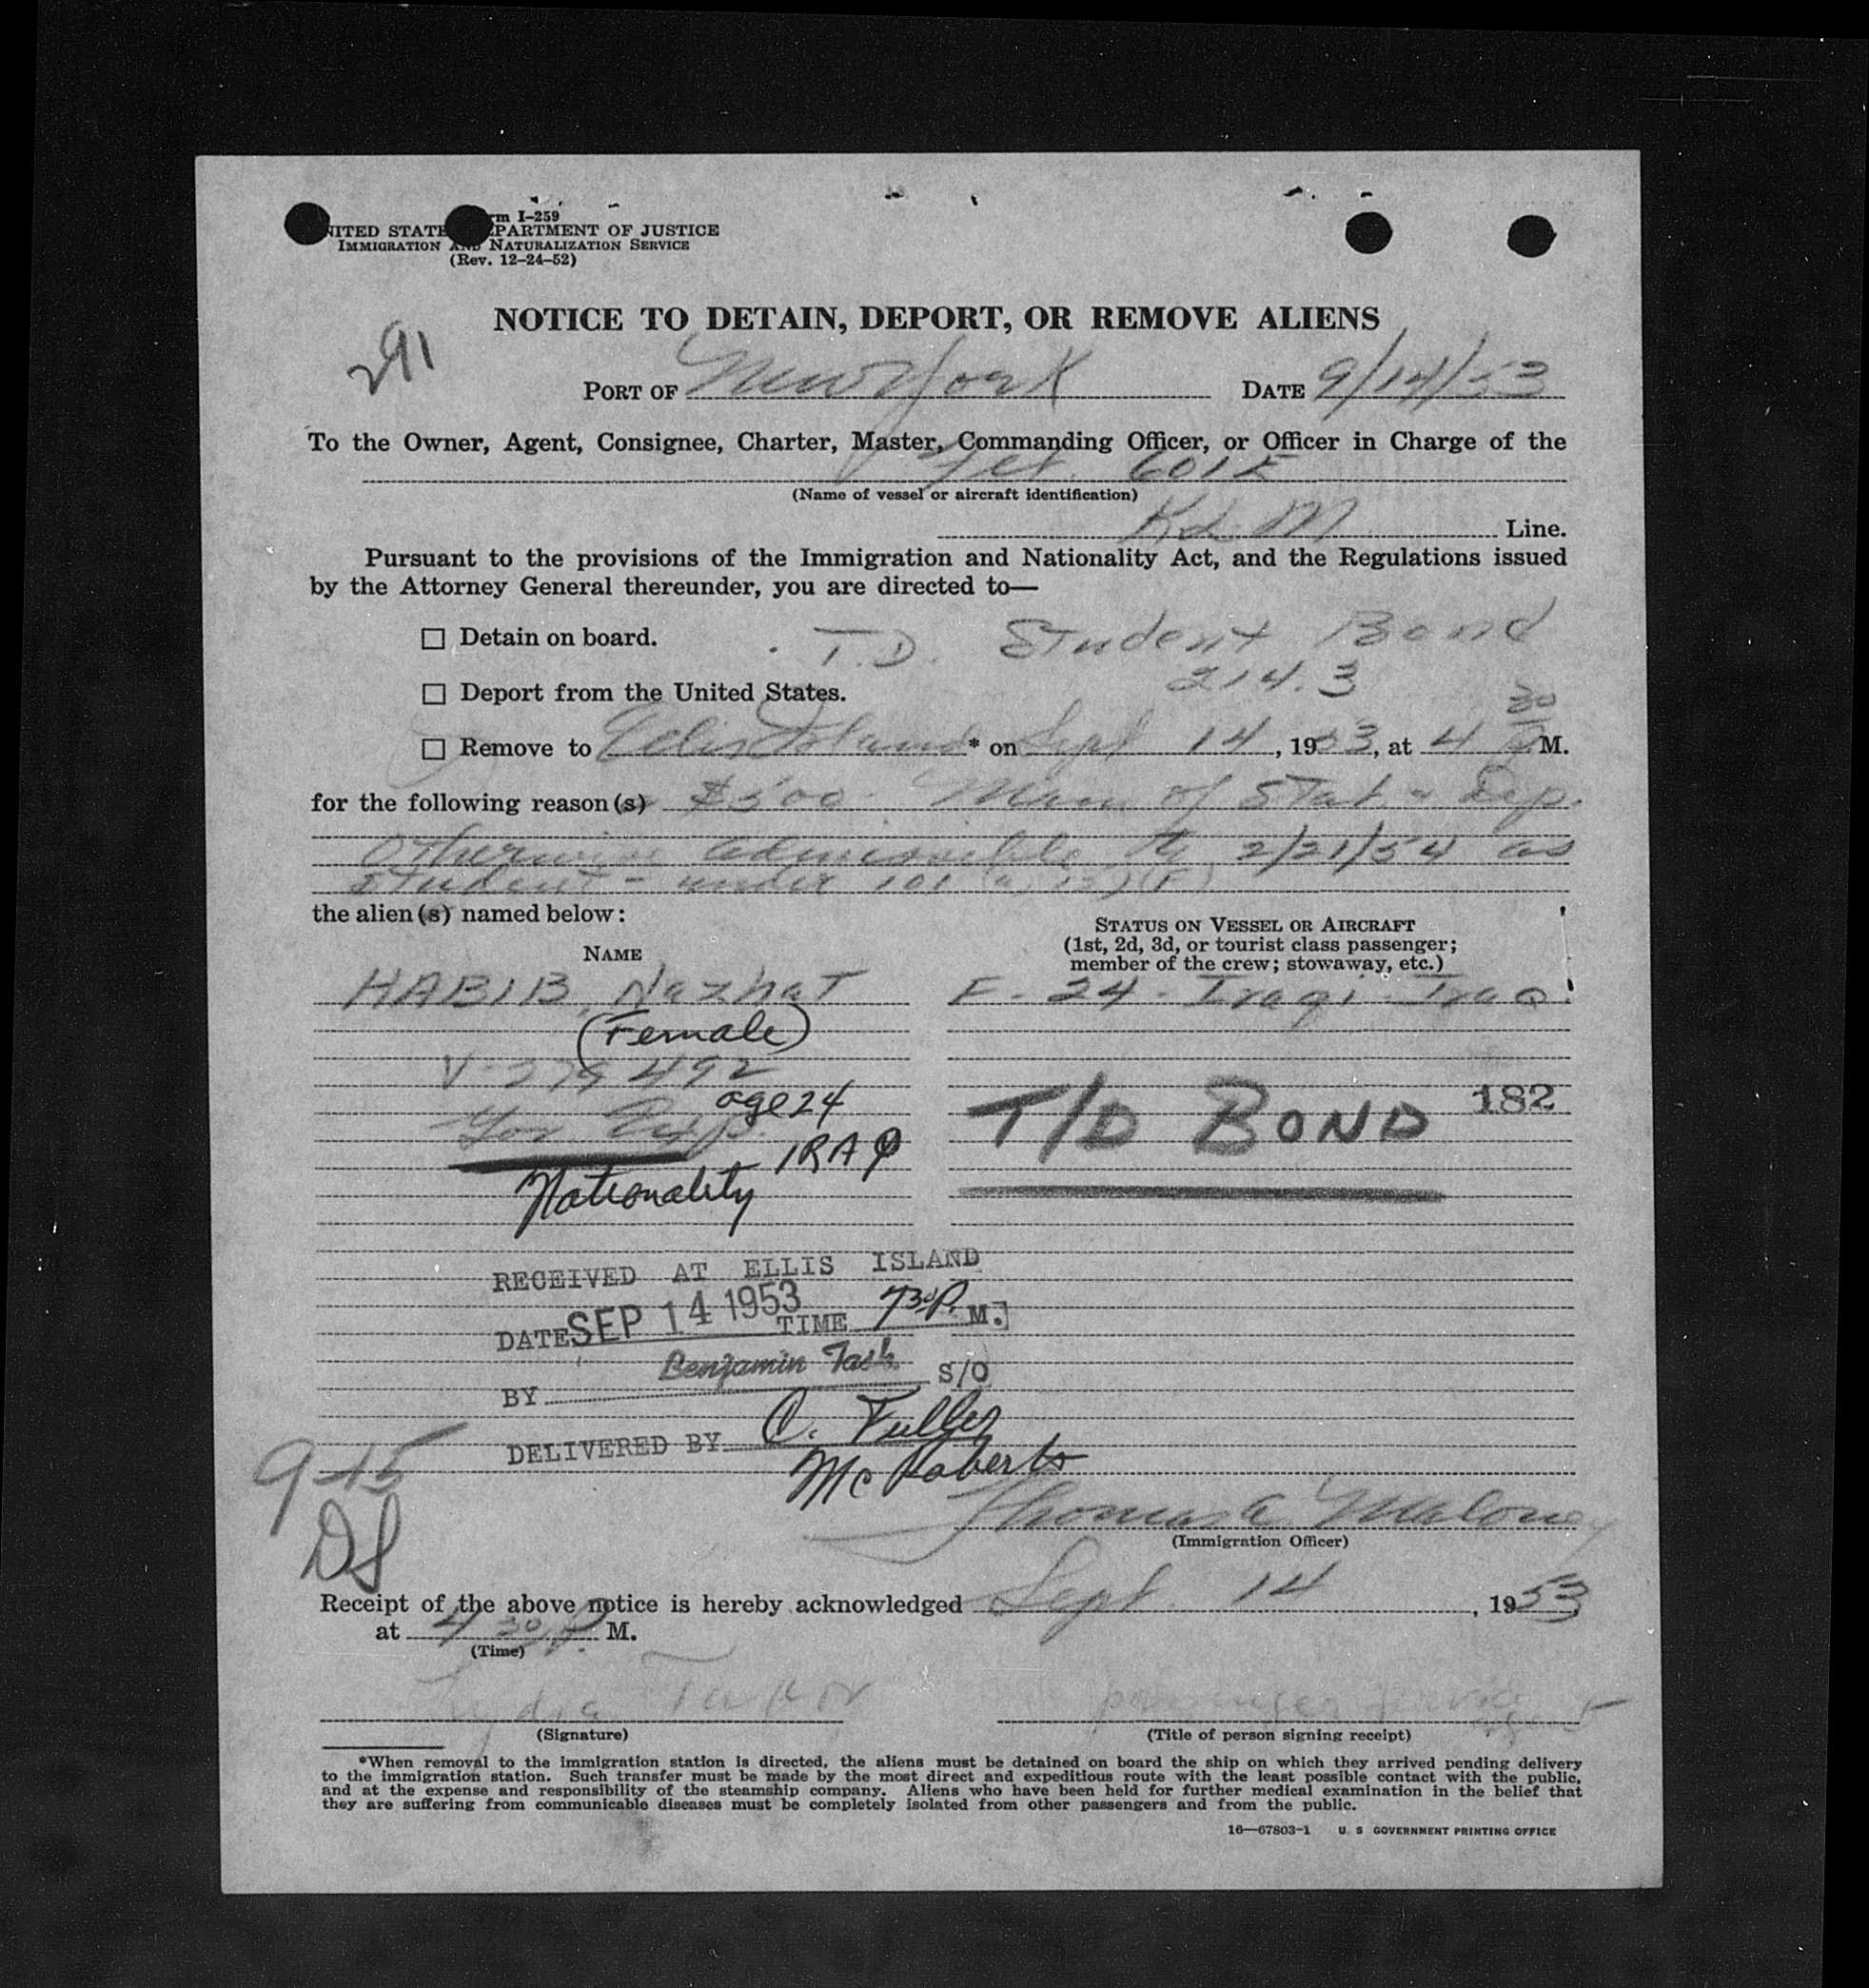 rm I-259
NITED STATE PARTMENT OF JUSTICE
IMMIGRATION AND NATURALIZATION SERVICE
(Rev. 12-24-52)
NOTICE TO DETAIN, DEPORT, OR REMOVE ALIENS
291
PORT OF New York DATE 9/14/53
To the Owner, Agent, Consignee, Charter, Master, Commanding Officer, or Officer in Charge of the
601E
(Name of vessel or aircraft identification)
KLM Line.
Pursuant to the provisions of the Immigration and Nationality Act, and the Regulations issued
by the Attorney General thereunder, you are directed to—
☐ Detain on board. T.D. Student Bond
☐ Deport from the United States. 214.3
☐ Remove to Ellis Island * on Sept 14, 1953, at 4 30 P M.
for the following reason(s) $500 of Stat & Dep.
Otherwise admissible to 2/21/54 as
student - under 101 (a)(15)(F)
the alien(s) named below:
STATUS ON VESSEL OR AIRCRAFT
(1st, 2d, 3d, or tourist class passenger;
member of the crew; stowaway, etc.)
NAME
HABIB, Nazhat F - 24 - Iraqi - Iraq.
(Female)
age 24
T/D BOND 182
IRAQ
Nationality
RECEIVED AT ELLIS ISLAND
DATE SEP 14 1953 TIME 7 30 P. M.
BY Benjamin Tash S/O
DELIVERED BY C. Fuller
McRoberts
9-15
DS
Thomas A Maloney
(Immigration Officer)
Receipt of the above notice is hereby acknowledged Sept. 14, 1953
at 4 30 P. M.
(Time)
Lydia Taylor passenger service agent
(Signature) (Title of person signing receipt)
*When removal to the immigration station is directed, the aliens must be detained on board the ship on which they arrived pending delivery
to the immigration station. Such transfer must be made by the most direct and expeditious route with the least possible contact with the public,
and at the expense and responsibility of the steamship company. Aliens who have been held for further medical examination in the belief that
they are suffering from communicable diseases must be completely isolated from other passengers and from the public.
16—67803-1 U. S. GOVERNMENT PRINTING OFFICE